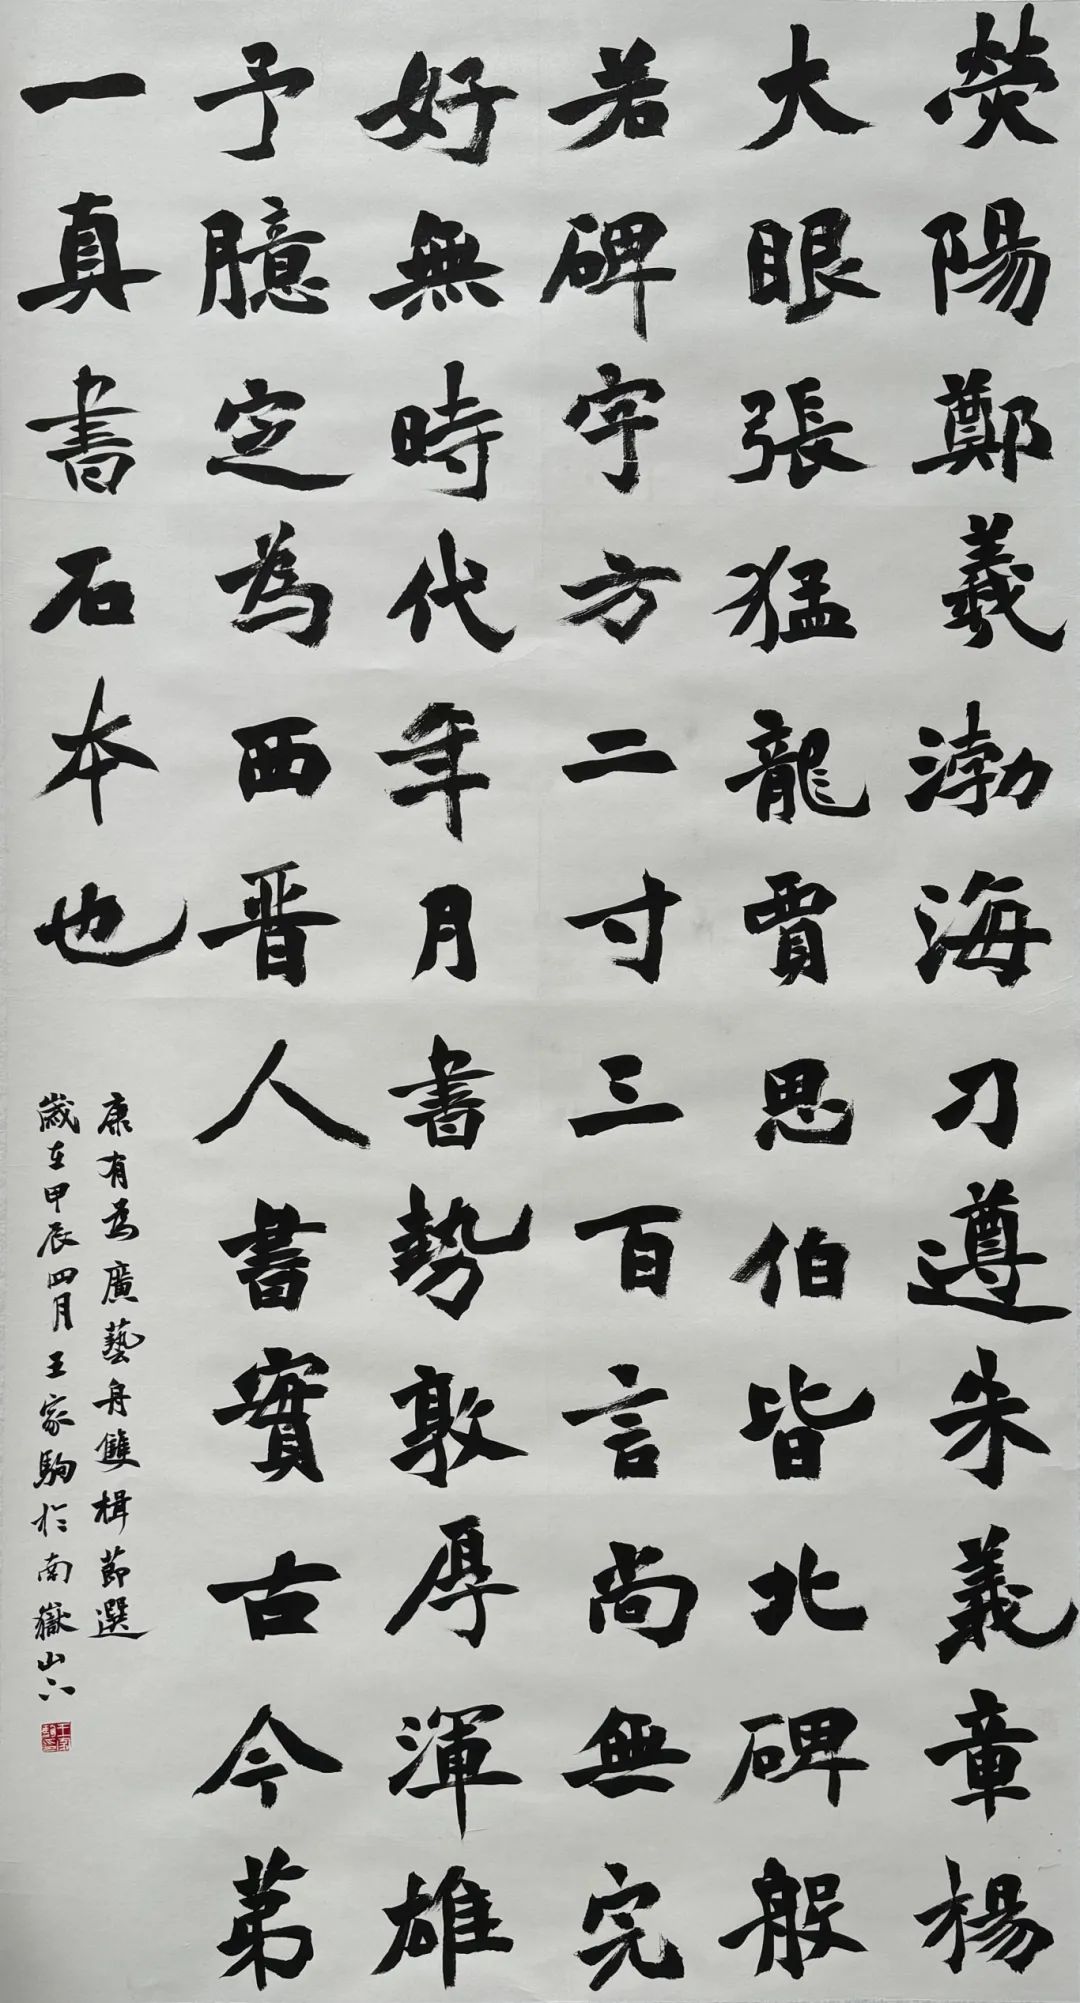 熒陽鄭羲渤海刀遵朱義章楊
大眼張猛龍賈思伯皆北碑般
若碑字方二寸三百言尚無完
好無時代年月書勢敦厚渾雄
予臆定為西晋人書實古今苐
一真書石本也
康有為廣藝舟雙楫節選
歲在甲辰四月王家駒於南嶽山下